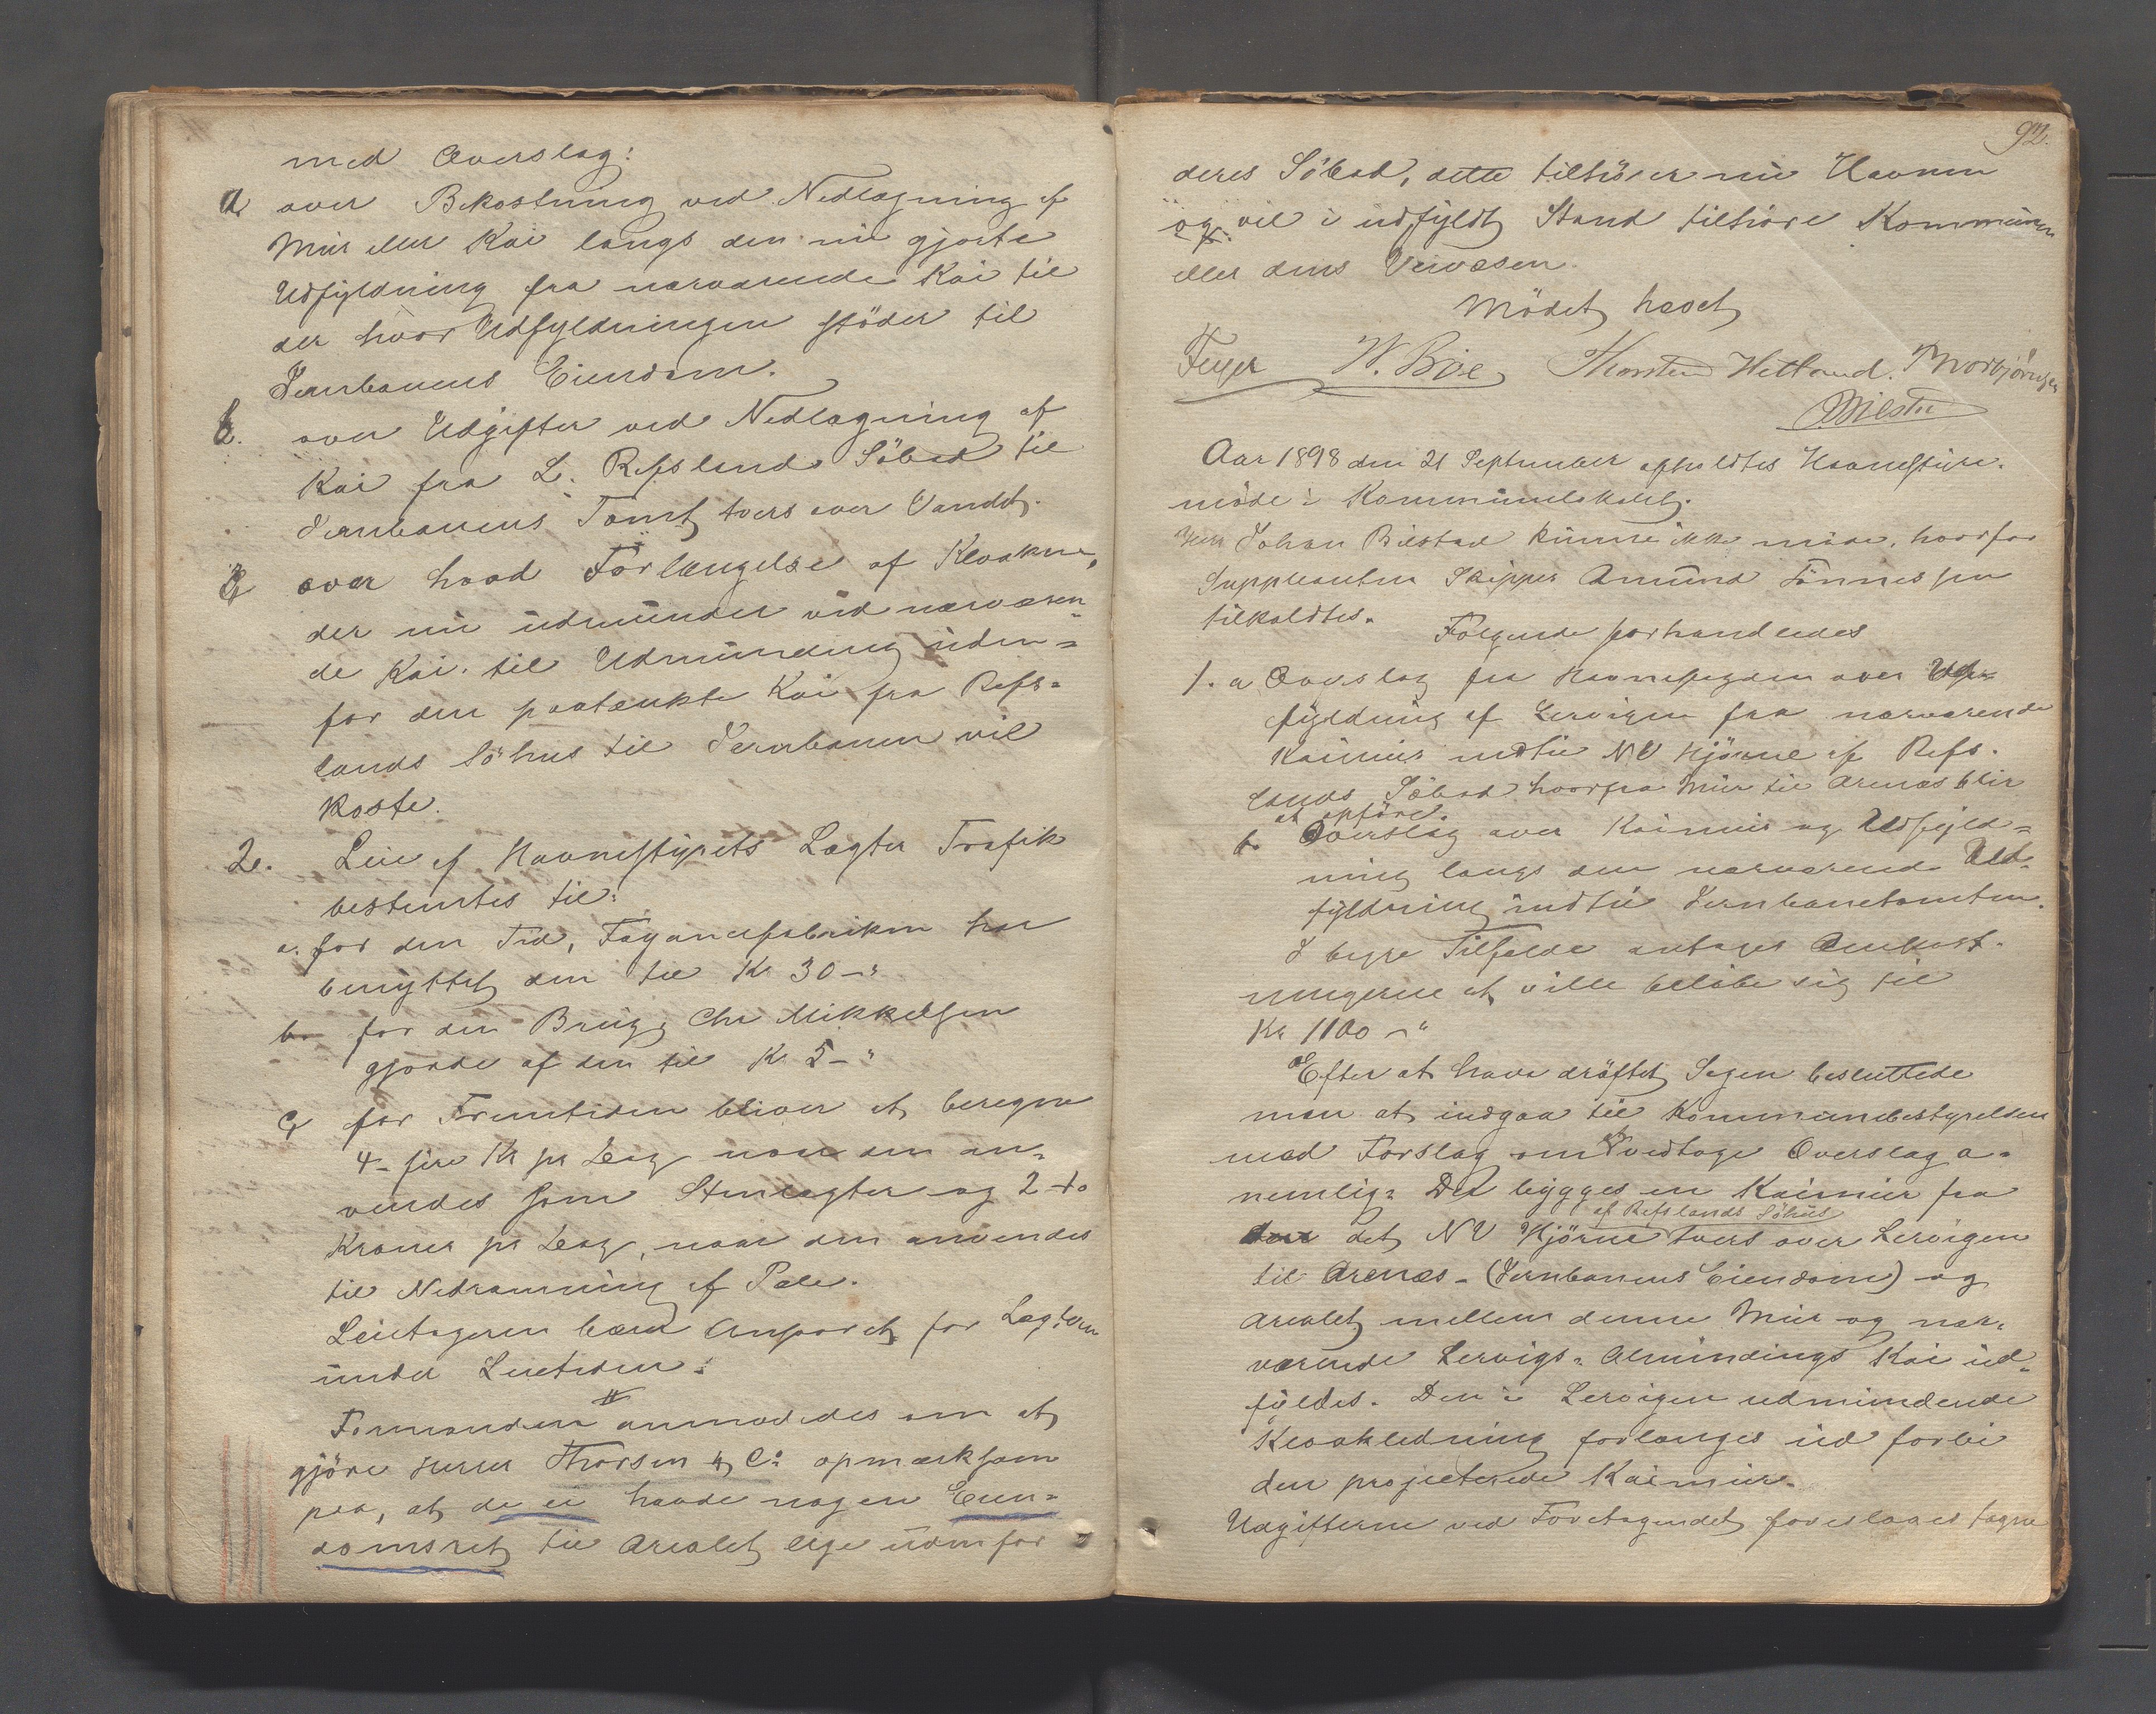 med Overslag:
a, over Bekostning ved Nedlægning af
Mur eller Kai langs den nu gjorte
Udfyldning fra nærværende Kai til
der hvor Udfyldningen støder til
Jernbanens Eiendom.
b. over Udgifter ved Nedlægning af
Kai fra L. Refslands Söbod til
Jernbanens Tomt tvers over Vandet.
c, over hvad Forlængelse af Kloaken,
der nu udmunder ved nærværen-
de Kai til Udmunding uden-
for den paatænkte Kai fra Refs-
lands Söhus til Jernbanen vil
koste.
2. Leie af Havnestyrets Lægter Trafik
bestemtes til:
a. for den Tid, Fayancefabriken har
benyttet den til Kr 30-"
b. for den Brug, Chr Mikkelsen
gjorde af den til Kr 5-"
c, for Fremtiden bliver at beregne
4- fire Kr pr Dag naar den an-
vendes som Stenlægter og 2 to
Kroner pr Dag, naar den anvendes
til Nedramning af Pæle.
Leietageren bærer Ansvaret for Lægteren
under Leietiden.
Formanden anmodedes om at
gjöre Herrer Thorsen & Co opmærksom
paa, at de ei havde nogen Eien-
domsret til Arealet lige udenfor
92.
deres Söbod, dette tilhörer nu Havnen
og vil i udfyldt Stand tilhöre Kommunen
eller dens Veivæsen.
Mödet hævet
Feyer W. Böe Thorsten Hetland. Thorbjörnsen
Bilstad
Aar 1898 den 21 September afholdtes Havnestyre-
möde i Kommunelokalet.
Herr Johan Bilstad kunne ikke möde, hvorfor
Suppleanten Skipper Amund Tönnessen
tilkaldtes.
Følgende forhandledes
1. a Overslag fra Havnefogden over Ud-
fyldning af Lervigen fra nærværende
Kaimur indtil NV Hjörne af Refs-
lands Söbod hvorfra Mur til Arenæs blir
at opföre.
b. Overslag over Kaimur og Udfyld-
ning langs den nærværende Ud-
fyldning indtil Jernbanetomten.
I begge Tilfælde antages Omkost-
ningerne at ville belöbe sig til
Kr 1100-"
Efter at have dröftet Sagen besluttede
man at indgaa til Kommunebestyrelsen
med Forslag om at vedtage Overslag a-
nemlig: Der bygges en Kaimur fra
af Refslands Söhus
det NV Hjörne tvers over Lervigen
til Arenæs - (Jernbanens Eiendom) og
Arealet mellem denne Mur og nær-
værende Lervigs- Almindings Kai ud-
fyldes. Den i Lervigen udmundende
Kloakledning forlænges ud forbi
den projecterede Kaimur.
Udgifterne ved Foretagendet foreslaaes tagne